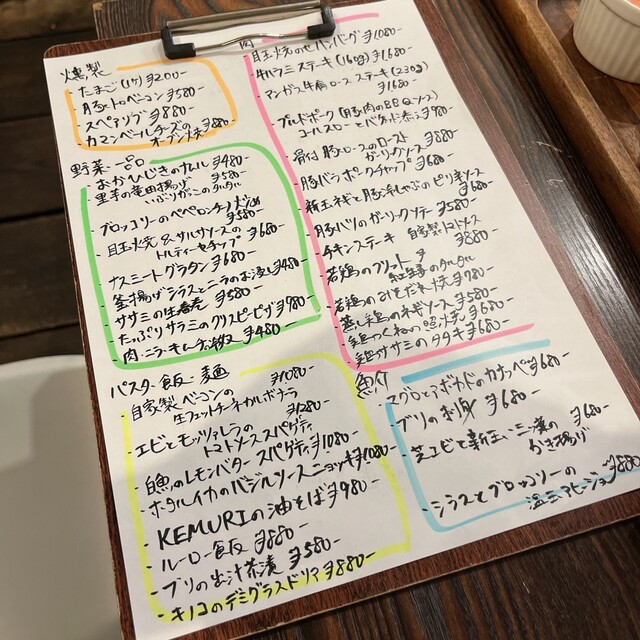 燻製
・たまご(1ケ) ¥200-
・豚トロベーコン ¥580-
・スペアリブ ¥880-
・カマンベールチーズの ¥880-
オーブン
野菜 一品
・おかひじきのナムル ¥480-
・里芋の竜田揚げ ¥580-
いぶりがっこのタルタル
・ブロッコリーのペペロンチーノ炒め
¥580-
・目玉焼き&サルサソースの
トルティーヤチップ ¥680-
・ナスミートグラタン ¥680-
・釜揚げシラスとニラのお浸し ¥480-
・ササミの生春巻 ¥580-
・たっぷりサラミのクリスピーピザ ¥980-
・肉・ニラ・キムチ ¥480-
パスタ・飯・麺
・自家製ベーコンの ¥1080-
生フェットチーネカルボナーラ
・エビとモッツァレラの ¥1280-
トマトソーススパゲティ
・白魚のレモンバタースパゲティ ¥1080-
・ホタルイカのバジルソースニョッキ ¥1080-
・KEMURIの油そば ¥980-
・ルーロー飯 ¥880-
・ブリの出汁茶漬 ¥580-
・キノコのデミグラスドリア ¥880-
肉
・目玉焼のせハンバーグ ¥1080-
・牛ハラミステーキ(160g) ¥1680-
・マンガリッツァ牛肩ロースステーキ(230g)
¥1680-
・プルドポーク(豚肉のBBQソース)
コールスローとバゲット添え ¥980-
・骨付豚ロースのロースト ¥880-
ガーリックソース
・豚バラポークチャップ ¥680-
・新玉ネギと豚冷しゃぶのピリ辛ソース
¥680-
・豚ハツのガーリックソテー ¥580-
・チキンステーキ 自家製トマトソース
¥880-
・若鶏のフリット
紅生姜のタルタル
・若鶏のみそだれ焼 ¥780-
・蒸し鶏のネギソース ¥580-
・鶏つくねの照焼 ¥680-
・鶏ササミのタタキ ¥680-
魚介
・マグロとアボカドのカナッペ ¥680-
・ブリのお刺身 ¥680-
・芝エビと新玉、三つ葉の ¥680-
かき揚げ
・シラスとブロッコリーの ¥880-
温玉アヒージョ